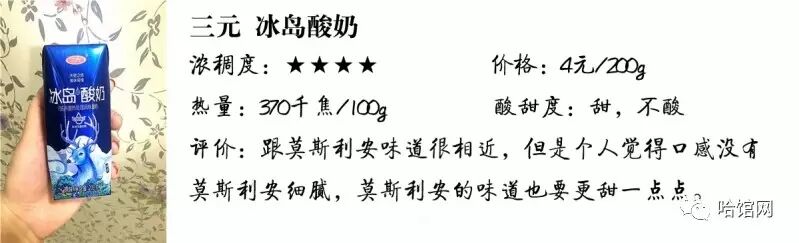 三元 冰岛酸奶
浓稠度：★★★★ 价格：4元/200g
热量：370千焦/100g 酸甜度：甜，不酸
评价：跟莫斯利安味道很相近，但是个人觉得口感没有
莫斯利安细腻，莫斯利安的味道也要更甜一点点。
哈馆网
冰岛酸奶